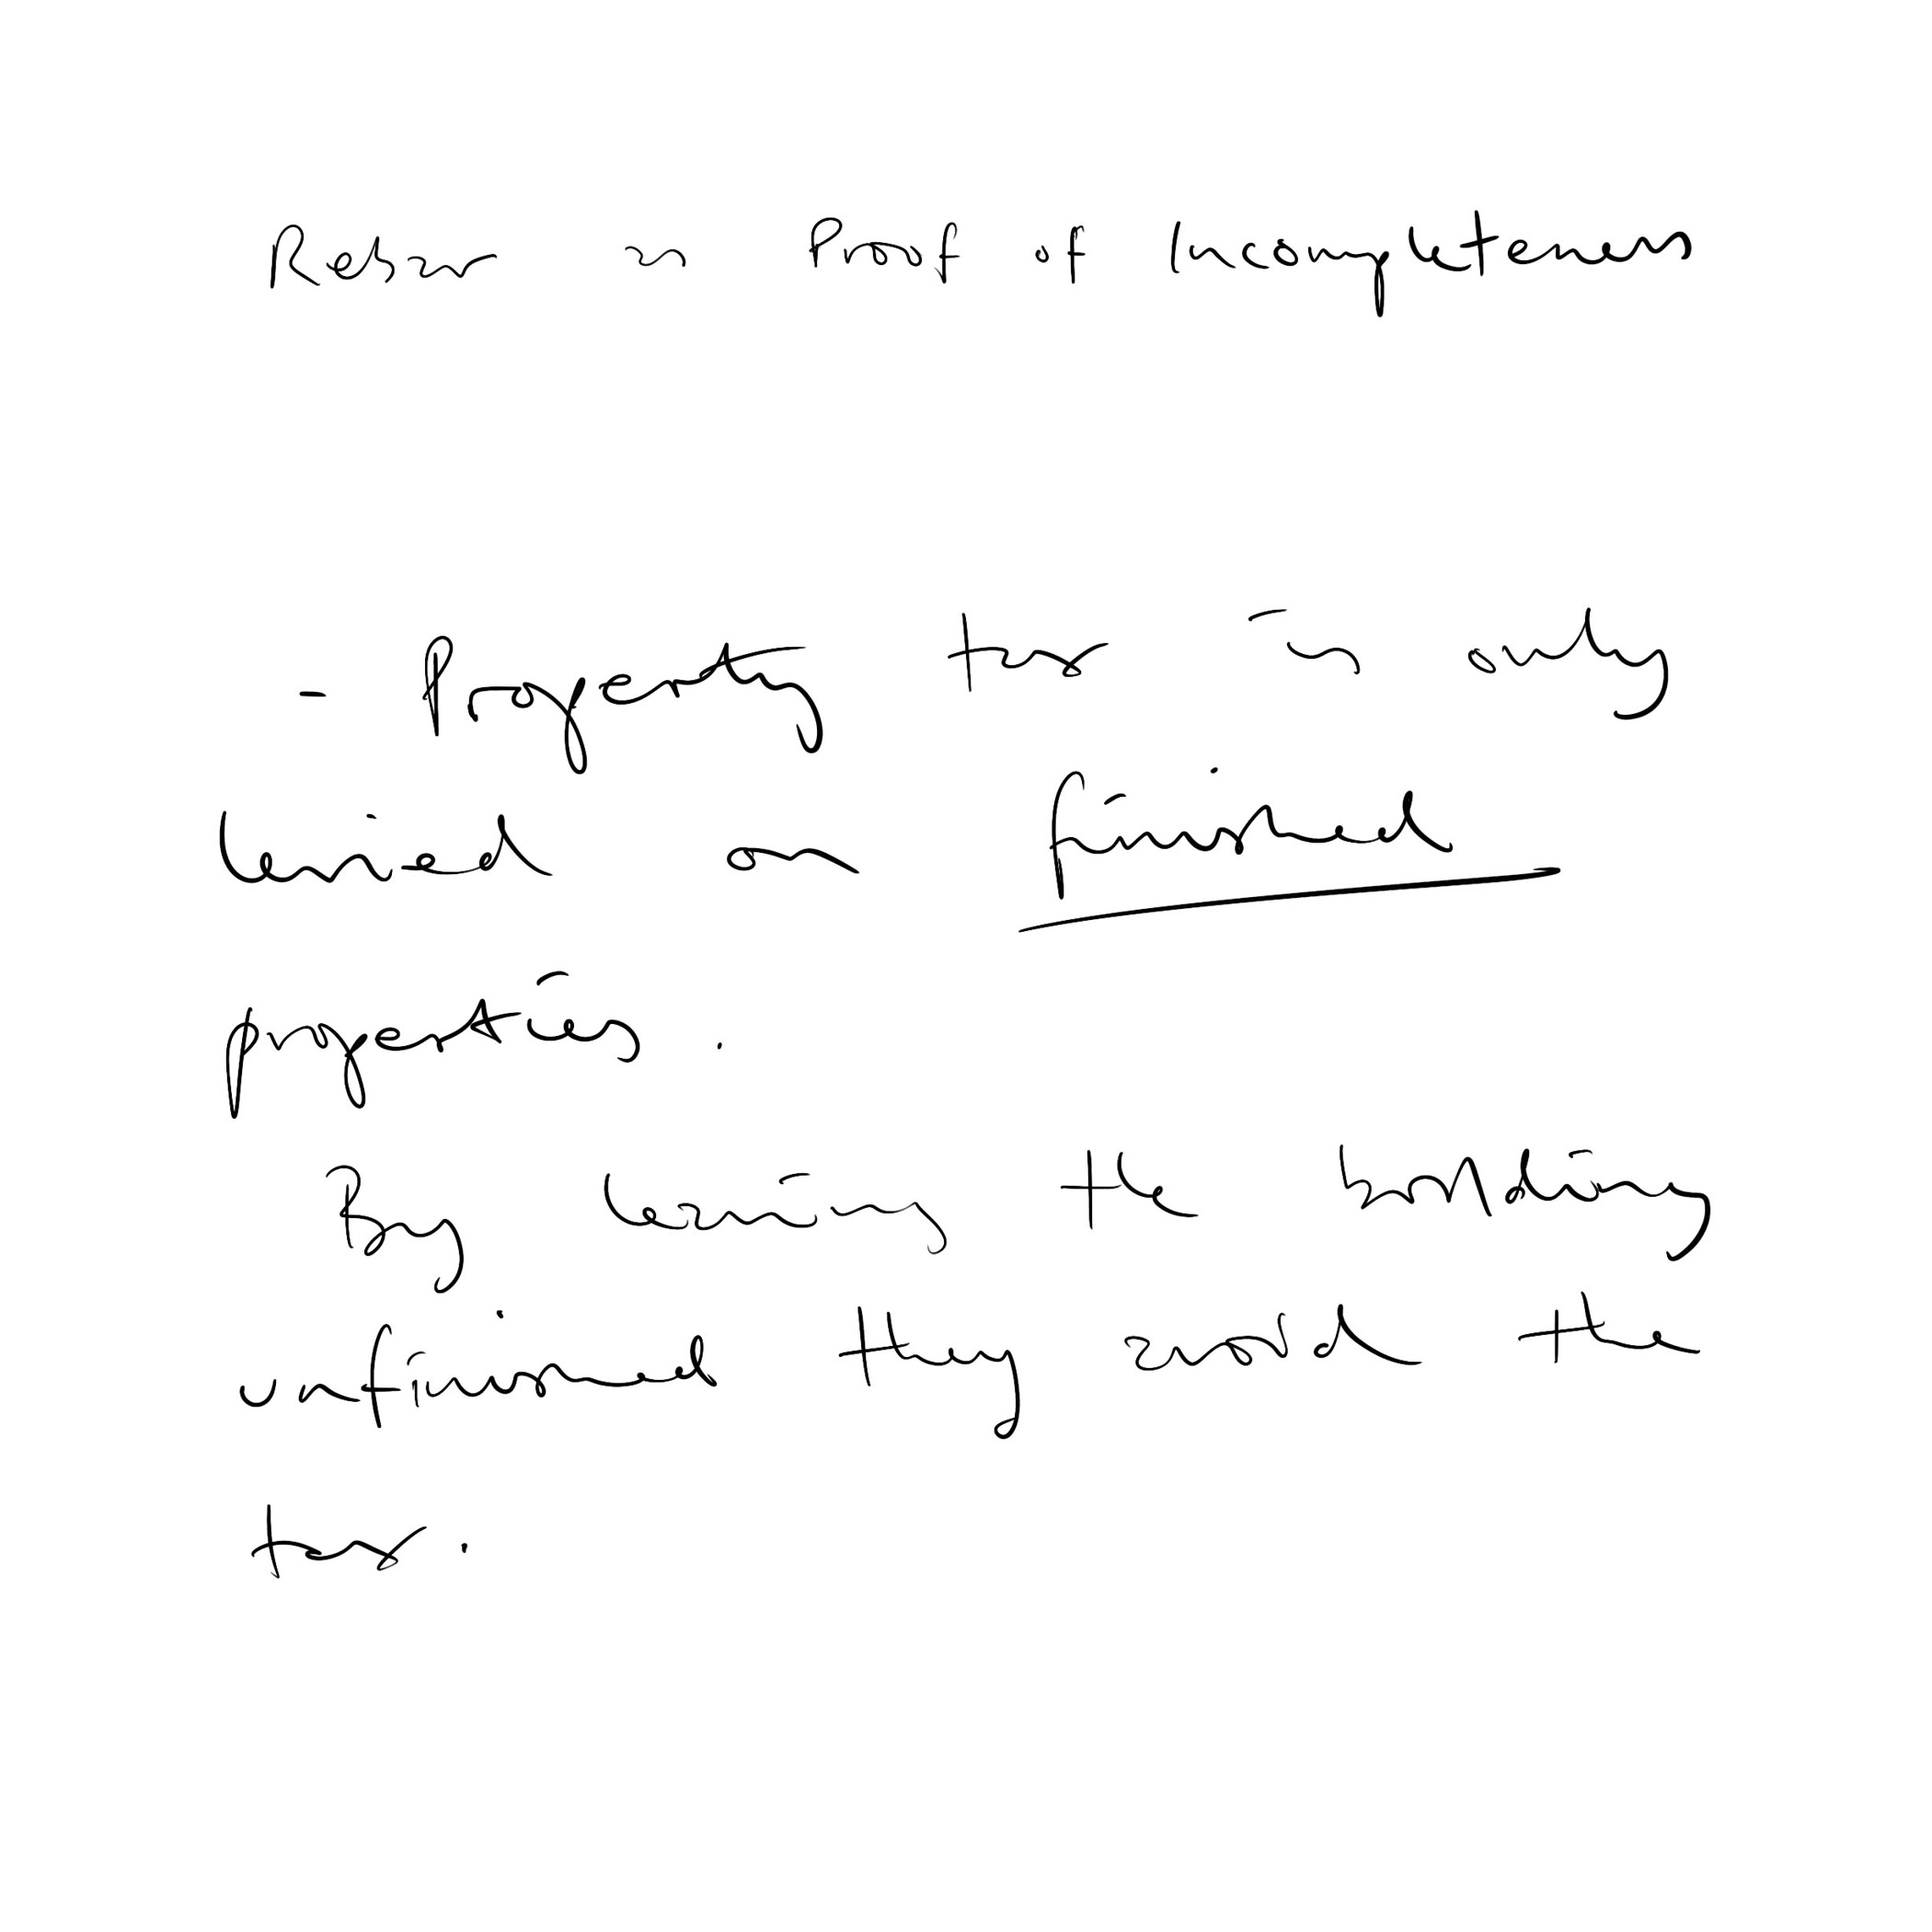 Reason is Proof of Incompleteness
- Property tax is only
levied on finished
properties.
By leaving the building
unfinished they avoid the
tax.